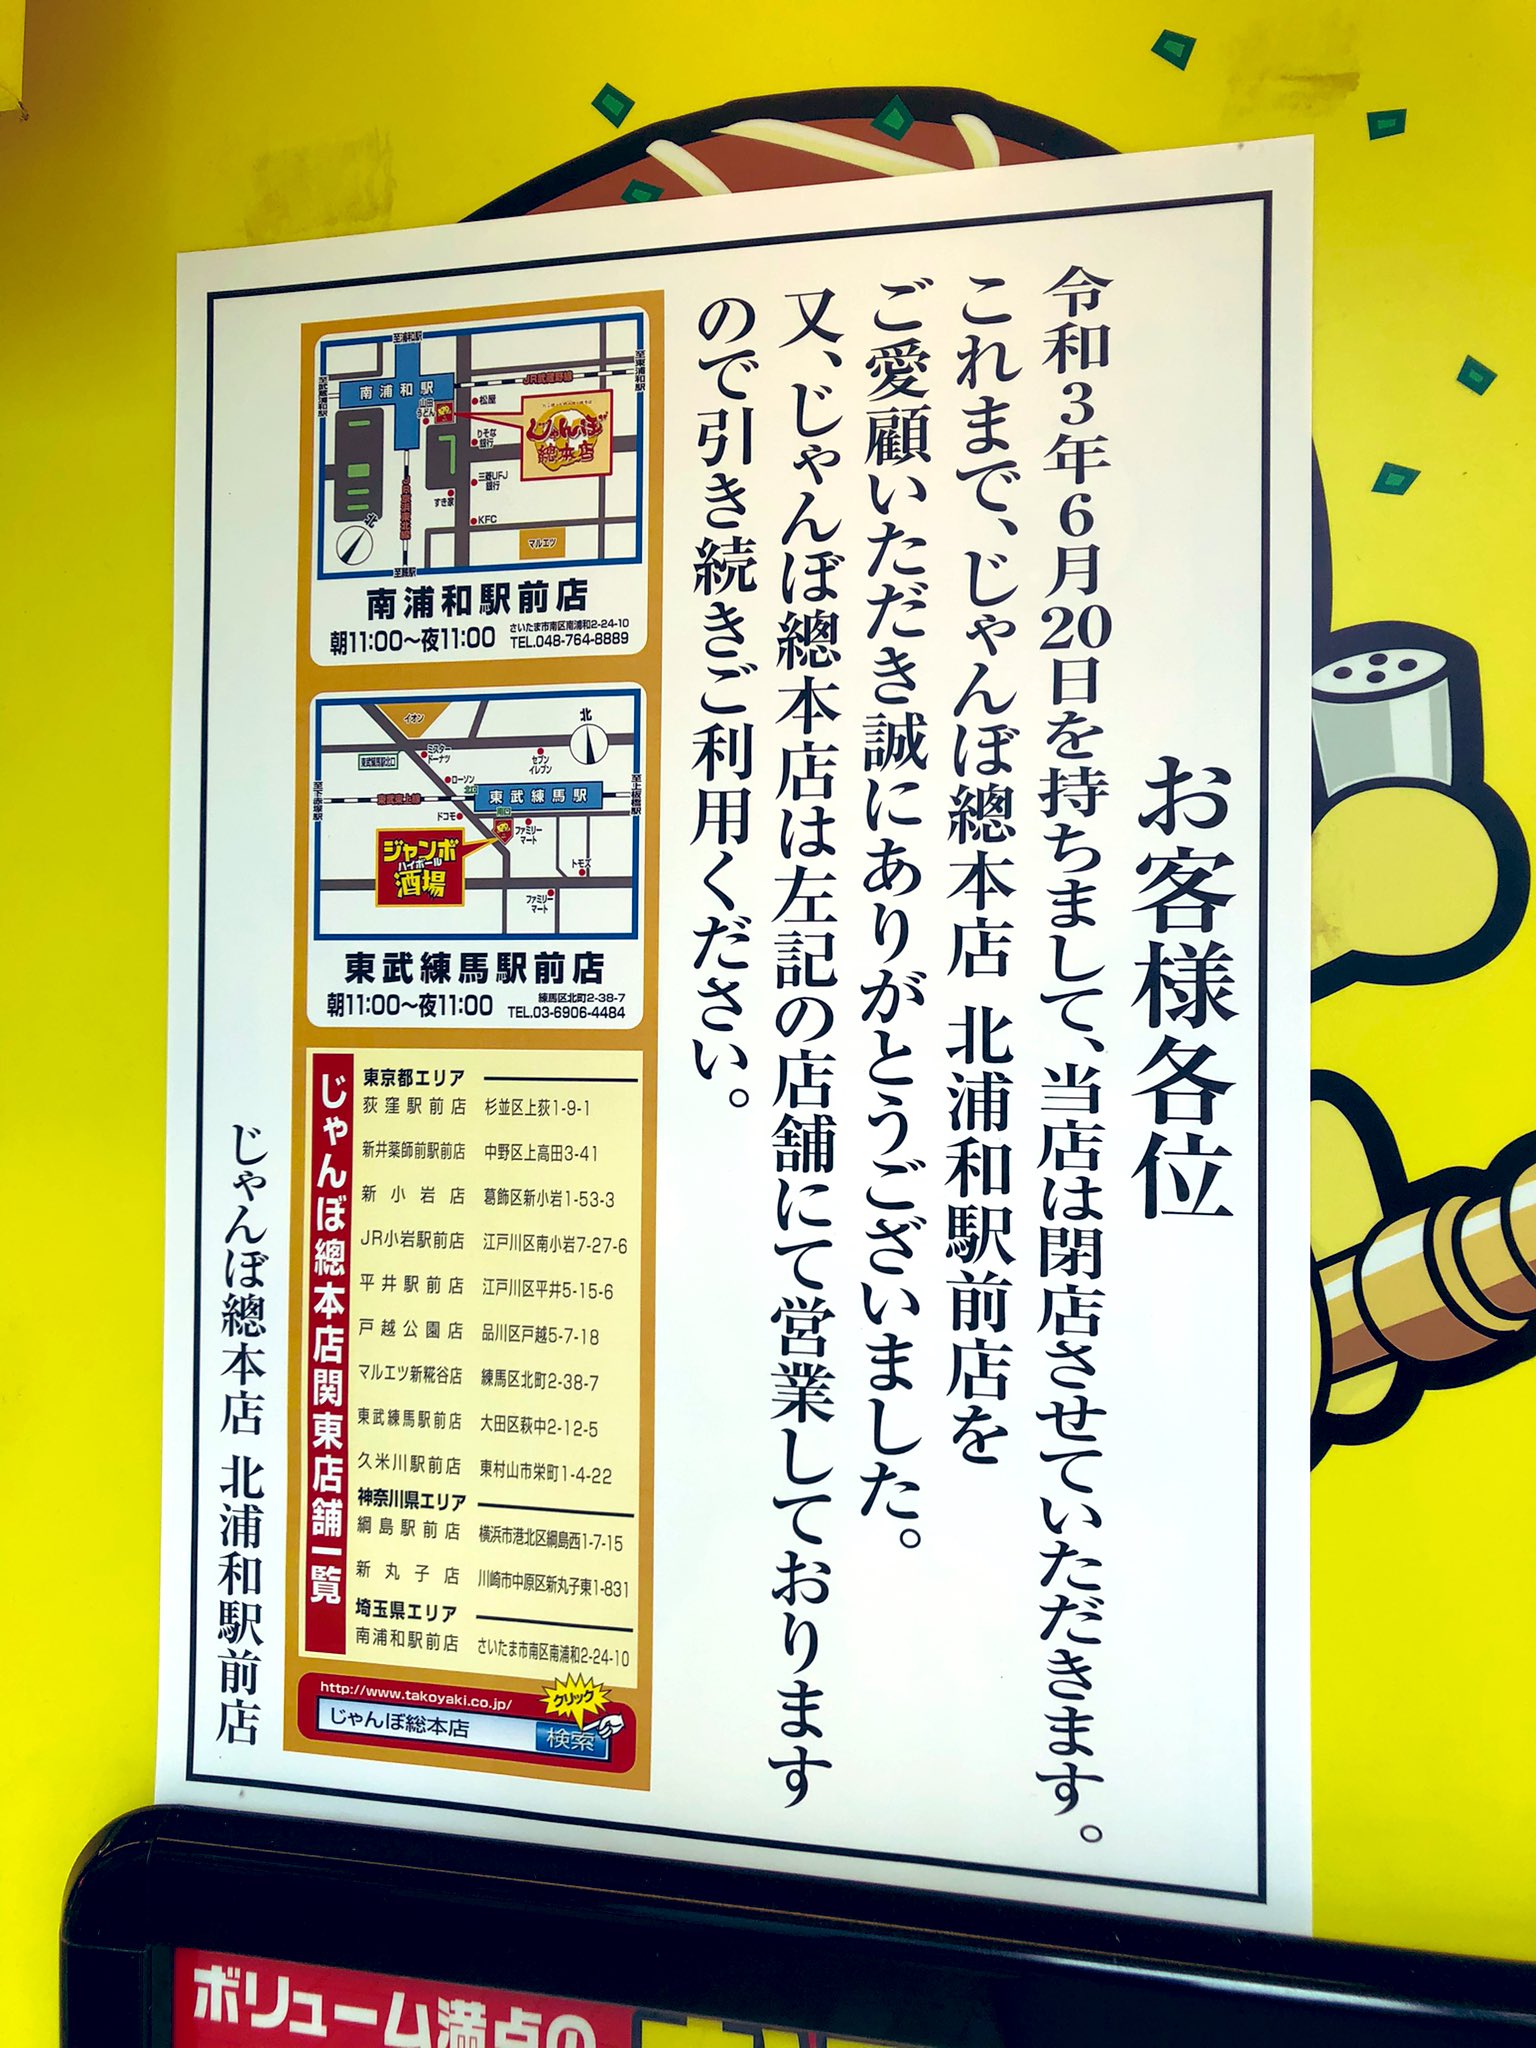 お客様各位
令和3年6月20日を持ちまして、当店は閉店させていただきます。
これまで、じゃんぼ總本店 北浦和駅前店を
ご愛顧いただき誠にありがとうございました。
又、じゃんぼ總本店は左記の店舗にて営業しております
ので引き続きご利用ください。
至浦和駅
至東浦和駅
至武蔵浦和駅
南浦和駅
JR武蔵野線
山田うどん
松屋
りそな銀行
三菱UFJ銀行
すき家
KFC
マルエツ
JR京浜東北線
至蕨駅
北
じゃんぼ總本店
南浦和駅前店
朝11:00〜夜11:00
さいたま市南区南浦和2-24-10
TEL.048-764-8889
イオン
北
ミスタードーナツ
東武練馬駅北口
セブンイレブン
ローソン
北口
至下赤塚駅
東武東上線
東武練馬駅
至上板橋駅
ドコモ
南口
ファミリーマート
トモズ
ファミリーマート
ジャンボ
ハイボール
酒場
東武練馬駅前店
朝11:00〜夜11:00
練馬区北町2-38-7
TEL.03-6906-4484
じゃんぼ總本店関東店舗一覧
東京都エリア
荻窪駅前店 杉並区上荻1-9-1
新井薬師前駅前店 中野区上高田3-41
新小岩店 葛飾区新小岩1-53-3
JR小岩駅前店 江戸川区南小岩7-27-6
平井駅前店 江戸川区平井5-15-6
戸越公園店 品川区戸越5-7-18
マルエツ新糀谷店 練馬区北町2-38-7
東武練馬駅前店 大田区萩中2-12-5
久米川駅前店 東村山市栄町1-4-22
神奈川県エリア
綱島駅前店 横浜市港北区綱島西1-7-15
新丸子店 川崎市中原区新丸子東1-831
埼玉県エリア
南浦和駅前店 さいたま市南区南浦和2-24-10
http://www.takoyaki.co.jp/
クリック
じゃんぼ総本店
検索
じゃんぼ總本店 北浦和駅前店
ボリューム満点の